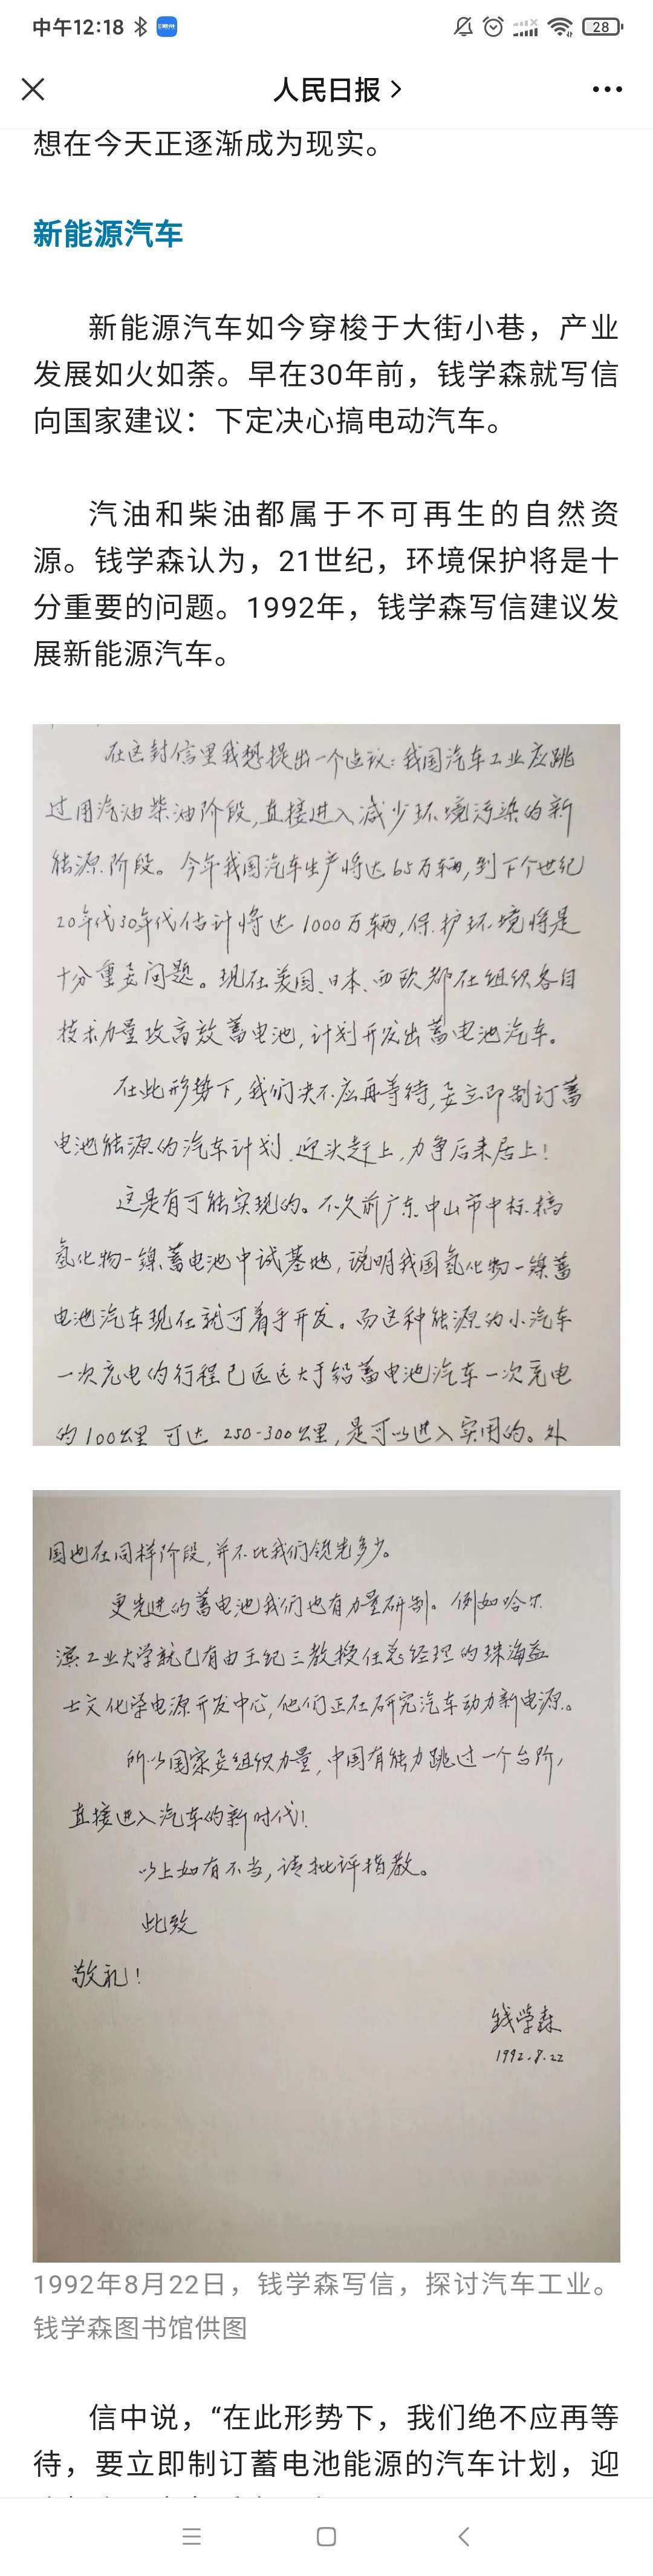 中午12:18
28
人民日报
想在今天正逐渐成为现实。
新能源汽车
新能源汽车如今穿梭于大街小巷，产业
发展如火如荼。早在30年前，钱学森就写信
向国家建议：下定决心搞电动汽车。
汽油和柴油都属于不可再生的自然资
源。钱学森认为，21世纪，环境保护将是十
分重要的问题。1992年，钱学森写信建议发
展新能源汽车。
在这封信里我想提出一个建议：我国汽车工业应跳
过用汽油柴油阶段，直接进入减少环境污染的新
能源阶段。今年我国汽车生产将达65万辆，到下个世纪
20年代30年代估计将达1000万辆，保护环境将是
十分重要问题。现在美国、日本、西欧都在组织各自
技术力量攻高效蓄电池，计划开发出蓄电池汽车。
在此形势下，我们决不应再等待，要立即制订蓄
电池能源的汽车计划，迎头赶上，力争后来居上！
这是有可能实现的。不久前广东中山市中标搞
氢化物-镍蓄电池中试基地，说明我国氢化物-镍蓄
电池汽车现在就可着手开发。而这种能源的小汽车
一次充电的行程已远远大于铅蓄电池汽车一次充电
的100公里 可达 250-300公里，是可以进入实用的。外
国也在同样阶段，并不比我们领先多少。
更先进的蓄电池我们也有力量研制。例如哈尔
滨工业大学就已有由王纪三教授任总经理的珠海益
士文化学电源开发中心，他们正在研究汽车动力新电源。
所以国家要组织力量，中国有能力跳过一个台阶，
直接进入汽车的新时代！
以上如有不当，请批评指教。
此致
敬礼！
钱学森
1992.8.22
1992年8月22日，钱学森写信，探讨汽车工业。
钱学森图书馆供图
信中说，“在此形势下，我们绝不应再等
待，要立即制订蓄电池能源的汽车计划，迎